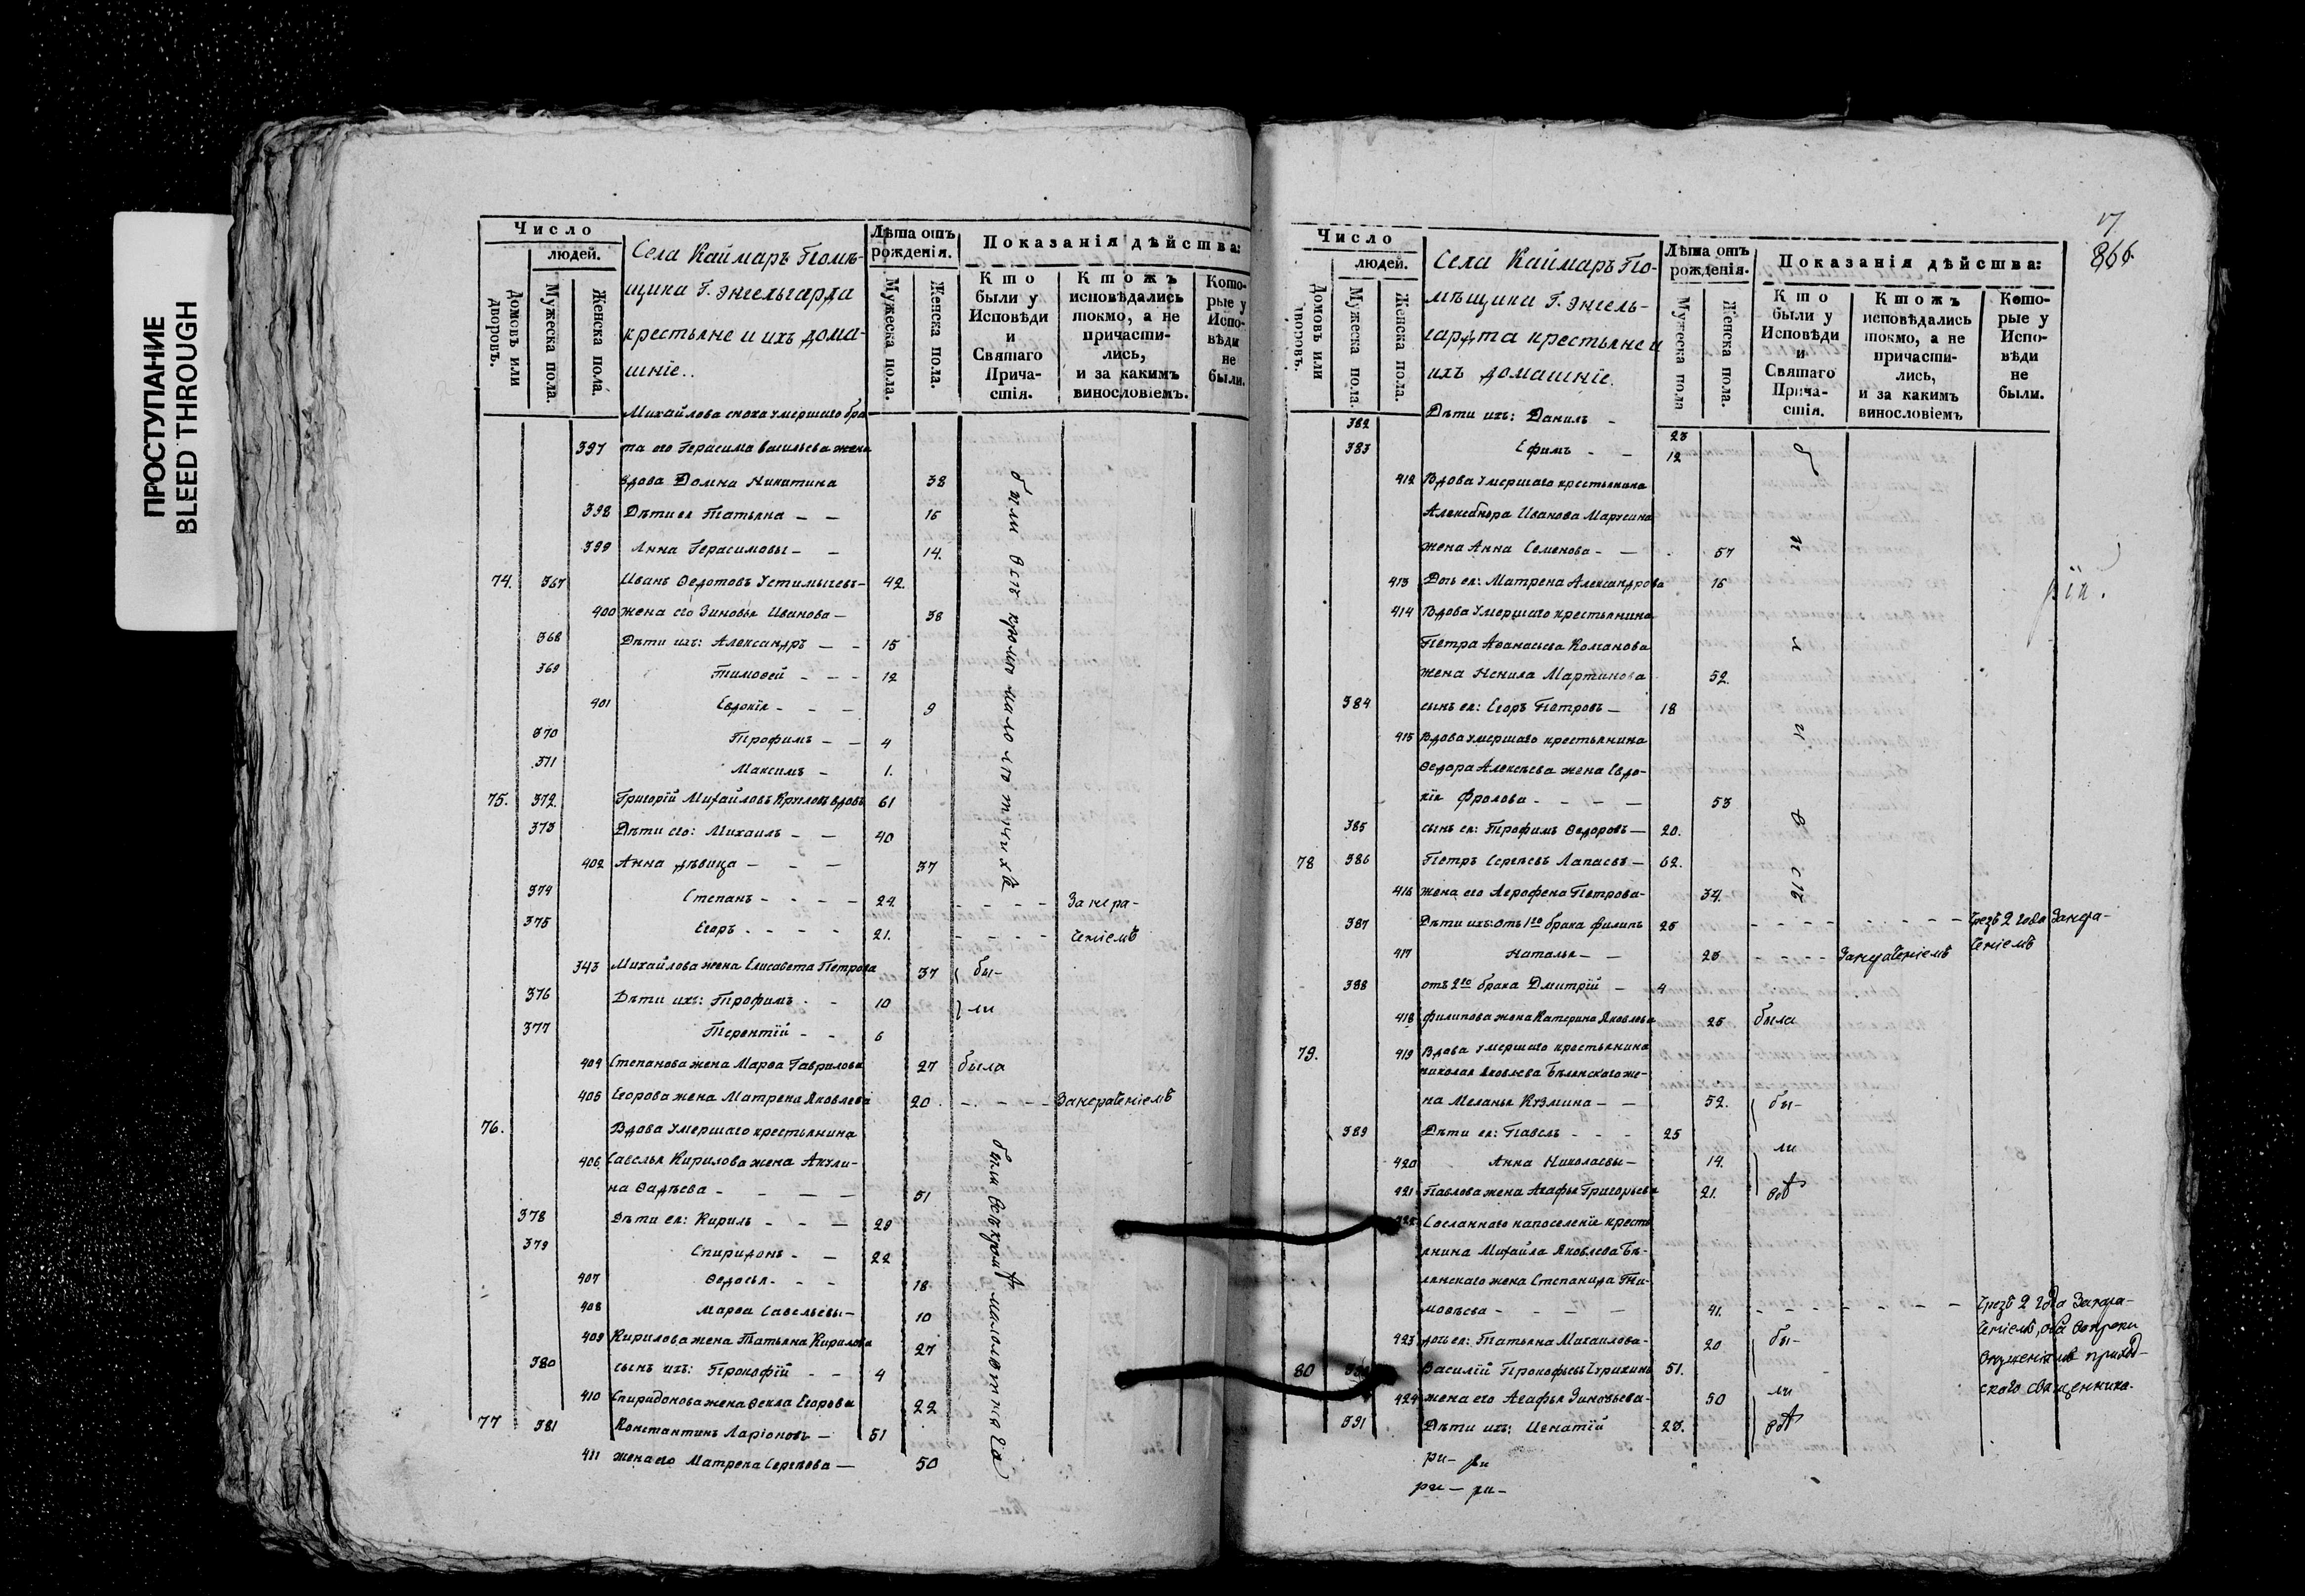 ПРОСТУПАНИЕ
BLEED THROUGH
Число
людей.
Домовъ или дворовъ.
Мужеска пола.
Женска пола.
Села Каймаръ Помѣ-
щика Г. Энгельгарда
крестьяне и ихъ дома-
шніе..
Лѣта отъ рожденія.
Мужеска пола.
Женска пола.
Показанія дѣйства:
Кто были у Исповѣди и Святаго Прича-стія.
Ктожъ исповѣдались токмо, а не причасти-лись, и за какимъ винословіемъ.
Кото-рые у Испо-вѣди не были.
Михайлова сноха умершаго бра
397 та его Герасима Васильева жена
вдова Домна Никитина 38
398 Дѣти ея Татьяна — — 16
399 Анна Герасимовы — — 14.
74. 367 Иванъ Ѳедотовъ Устимычевъ — 42.
400 жена его Зиновья Иванова — 38
368 Дѣти ихъ: Александръ — — 15
369 Тимоѳей - - - 12
401 Евдокія - - - 9
370 Трофимъ - — 4
371 Максимъ - 1.
75. 372 Григорій Михайловъ Кругловъ вдовъ 61
373 Дѣти его: Михаилъ - — 40
402 Анна дѣвица — - — 37
374 Степанъ - - - - 24 - - - - Занера-
375 Егоръ - - - - 21. - - - - ченіемъ
343 Михайлова жена Елисавета Петрова 37 бы-
376 Дѣти ихъ: Трофимъ - - 10 ли
377 Терентій - - 6
404 Степанова жена Марѳа Гаврилова 27 была
405 Егорова жена Матрена Яковлева 20 - - - - Занераченіемъ
76. Вдова умершаго крестьянина
406 Савелья Кирилова жена Акули-
на Ѳадѣева - - — — 51
378 Дѣти ея: Кирилъ - - — 29
379 Спиридонъ - — 22
407 Ѳедосья - - - 18
408 Марѳа Савельевы — 10
409 Кирилова жена Татьяна Кирилова 27
380 сынъ ихъ: Прокофій - - 4
410 Спиридонова жена Ѳекла Егорова 22
77 381 Константинъ Ларіоновъ — 51
411 жена его Матрена Сергѣева — 50
были всѣ кромѣ малолѣтнихъ
были всѣ кромѣ малолѣтняго
17
866
Число
людей.
Домовъ или дворовъ.
Мужеска пола.
Женска пола.
Села Каймаръ По-
мѣщика Г. Энгель-
гардта крестьяне и
ихъ домашніе.
Лѣта отъ рожденія.
Мужеска пола
Женска пола.
Показанія дѣйства:
Кто были у Исповѣди и Святаго Прича-стія.
Ктожъ исповѣдались токмо, а не причасти-лись, и за какимъ винословіемъ
Кото-рые у Испо-вѣди не были.
382 Дѣти ихъ: Данилъ - 23
383 Ефимъ - — 12
412 Вдова умершаго крестьянина
Александра Иванова Марусина
жена Анна Семенова - — 57
413 Дочь ея: Матрена Александрова 16
414 Вдова умершаго крестьянина
Петра Аѳанасьева Романова
жена Ненила Мартинова 52.
384 сынъ ея: Егоръ Петровъ — 18
415 Вдова умершаго крестьянина
Ѳедора Алексѣева жена Евдо-
кія Фролова - - — — 53
385 сынъ ея: Трофимъ Ѳедоровъ — 20.
78 386 Петръ Сергѣевъ Лапаевъ — 62.
416 жена его Агрофена Петрова - 34.
387 Дѣти ихъ: отъ 1го брака Филипъ 25 - - - - чрезъ 2 года Занера-
ченіемъ
417 Наталья — 23 - - - - Занераченіемъ
388 отъ 2го брака Дмитрій — 4
418 Филипова жена Катерина Яковлева 25 была
79. 419 Вдова умершаго крестьянина
Николая Яковлева Бѣлянскаго же-
на Меланья Кузмина - — 52. бы-
389 Дѣти ея: Павелъ - - - 25 ли
420 Анна Николаевы — 14.
421 Павлова жена Агафья Григорьева 21. всѣ
422 Сосланнаго на поселеніе кресть
янина Михайла Яковлева Бѣ-
лянскаго жена Степанида Ти-
моѳеева - - — — 41. - - - - чрезъ 2 года Занера-
423 дочь ея: Татьяна Михаилова - 20 бы-
80 Василій Прокофьевъ 51.
424 жена его Агафья Зиновьева - 50 ли
391 Дѣти ихъ: Игнатій 23. всѣ
скаго священника.
были всѣ
рій.
ри- ри
ри — ри-